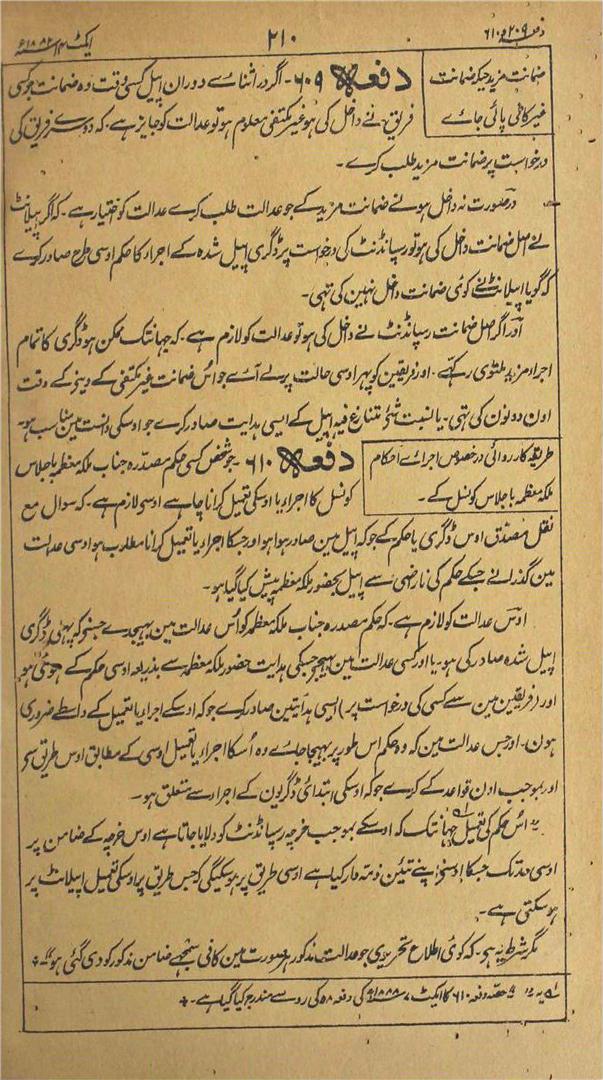 دفعہ ۶۰۹ و ۶۱۰
۲۱۰
ایکٹ ۱۴ ۱۸۸۲ء
ضمانت مزید جبکہ ضمانت
غیر کافی پائی جائے
دفعہ ۶۰۹ - اگر در اثنائے دوران اپیل کسی وقت وہ ضمانت جو کسی
فریق نے داخل کی ہو غیر مکتفی معلوم ہو تو عدالت کو جایز ہے - کہ دوسرے فریق کی
درخواست پر ضمانت مزید طلب کرے -
در صورت نہ داخل ہونے ضمانت مزید کے جو عدالت طلب کرے عدالت کو اختیار ہے - کہ اگر اپیلانٹ
نے اصل ضمانت داخل کی ہو تو رسپانڈنٹ کی درخواست پر ڈگری اپیل شدہ کے اجراء کا حکم اوسی طرح صادر کرے
کہ گویا اپیلانٹ نے کوئی ضمانت داخل نہین کی تہی -
اور اگر اصل ضمانت رسپانڈنٹ نے داخل کی ہو تو عدالت کو لازم ہے - کہ جہانتک ممکن ہو ڈگری کا تمام
اجراء مزید ملتوی رکہے - اور فریقین کو پہر اوسی حالت پر لے آئے جو اُس ضمانت غیر مکتفی کے دینے کے وقت
اون دونون کی تہی - یا نسبت شئے متنازع فیہ اپیل کے ایسی ہدایت صادر کرے جو اوسکی دانست مین مناسب ہو -
طریقہ کارروائی درخصوص اجرائے احکام
ملکہ معظمہ باجلاس کونسل کے -
دفعہ ۶۱۰ - جو شخص کسی حکم مصدرہ جناب ملکہ معظمہ باجلاس
کونسل کا اجراء یا اوسکی تعمیل کرانا چاہے اوسے لازم ہے - کہ سوال مع
نقل مصدّق اوس ڈگری یا حکم کے جو کہ اپیل مین صادر ہوا ہو اور جسکا اجراء یا تعمیل کرانا مطلوب ہو اوسی عدالت
مین گذرانے جسکے حکم کی ناراضی سے اپیل بحضور ملکہ معظمہ پیش کیا گیا ہو -
اوس عدالت کو لازم ہے - کہ حکم مصدرہ جناب ملکہ معظمہ کو اُس عدالت مین بہیجدے جسنے کہ پہلی ڈگری
اپیل شدہ صادر کی ہو - یا اور کسی عدالت مین بہیجے جسکی ہدایت حضور ملکہ معظمہ سے بذریعہ اوسی حکم کے ہوئی ہو
اور (فریقین مین سے کسی کی درخواست پر) ایسی ہدایتین صادر کرے جو کہ اوسکے اجراء یا تعمیل کے واسطے ضروری
ہون - اور جس عدالت مین کہ وہ حکم اس طور پر بہیجا جاے وہ اُسکا اجراء یا تعمیل اوسی کے مطابق اوس طریق سے
اور بموجب اون قواعد کے کرے جو کہ اوسکی ابتدائی ڈگریون کے اجراء سے متعلق ہو -
اُس حکم کی تعمیل جہانتک کہ اوسکے بموجب خرچہ رسپانڈنٹ کو دلایا جاتا ہے اوس خرچہ کے ضامن پر
اوسی حد تک جسکا اوسنے اپنے تئین ذمہ دار کیا ہے اوسی طریق پر ہو سکیگی کہ جس طریق پر اوسکی تعمیل اپیلانٹ پر
ہو سکتی ہے -
مگر شرط یہ ہے - کہ کوئی اطلاع تحریری جو عدالت مذکور ہر صورت مین کافی سمجھے ضامن مذکور کو دی گئی ہو
حصہ دفعہ ۶۱۰ کا ایکٹ ۷ ۱۸۸۸ء کی دفعہ ۵۸ کی رو سے مندرج کیا گیا ہے -